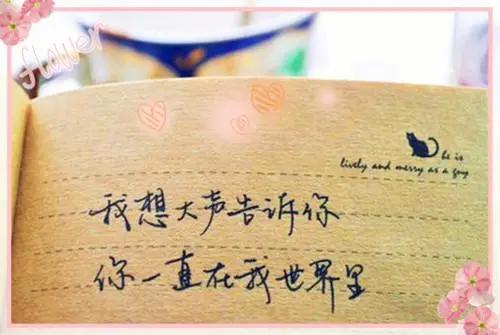 flower
he is
lively and merry as a guy
我想大声告诉你
你一直在我世界里